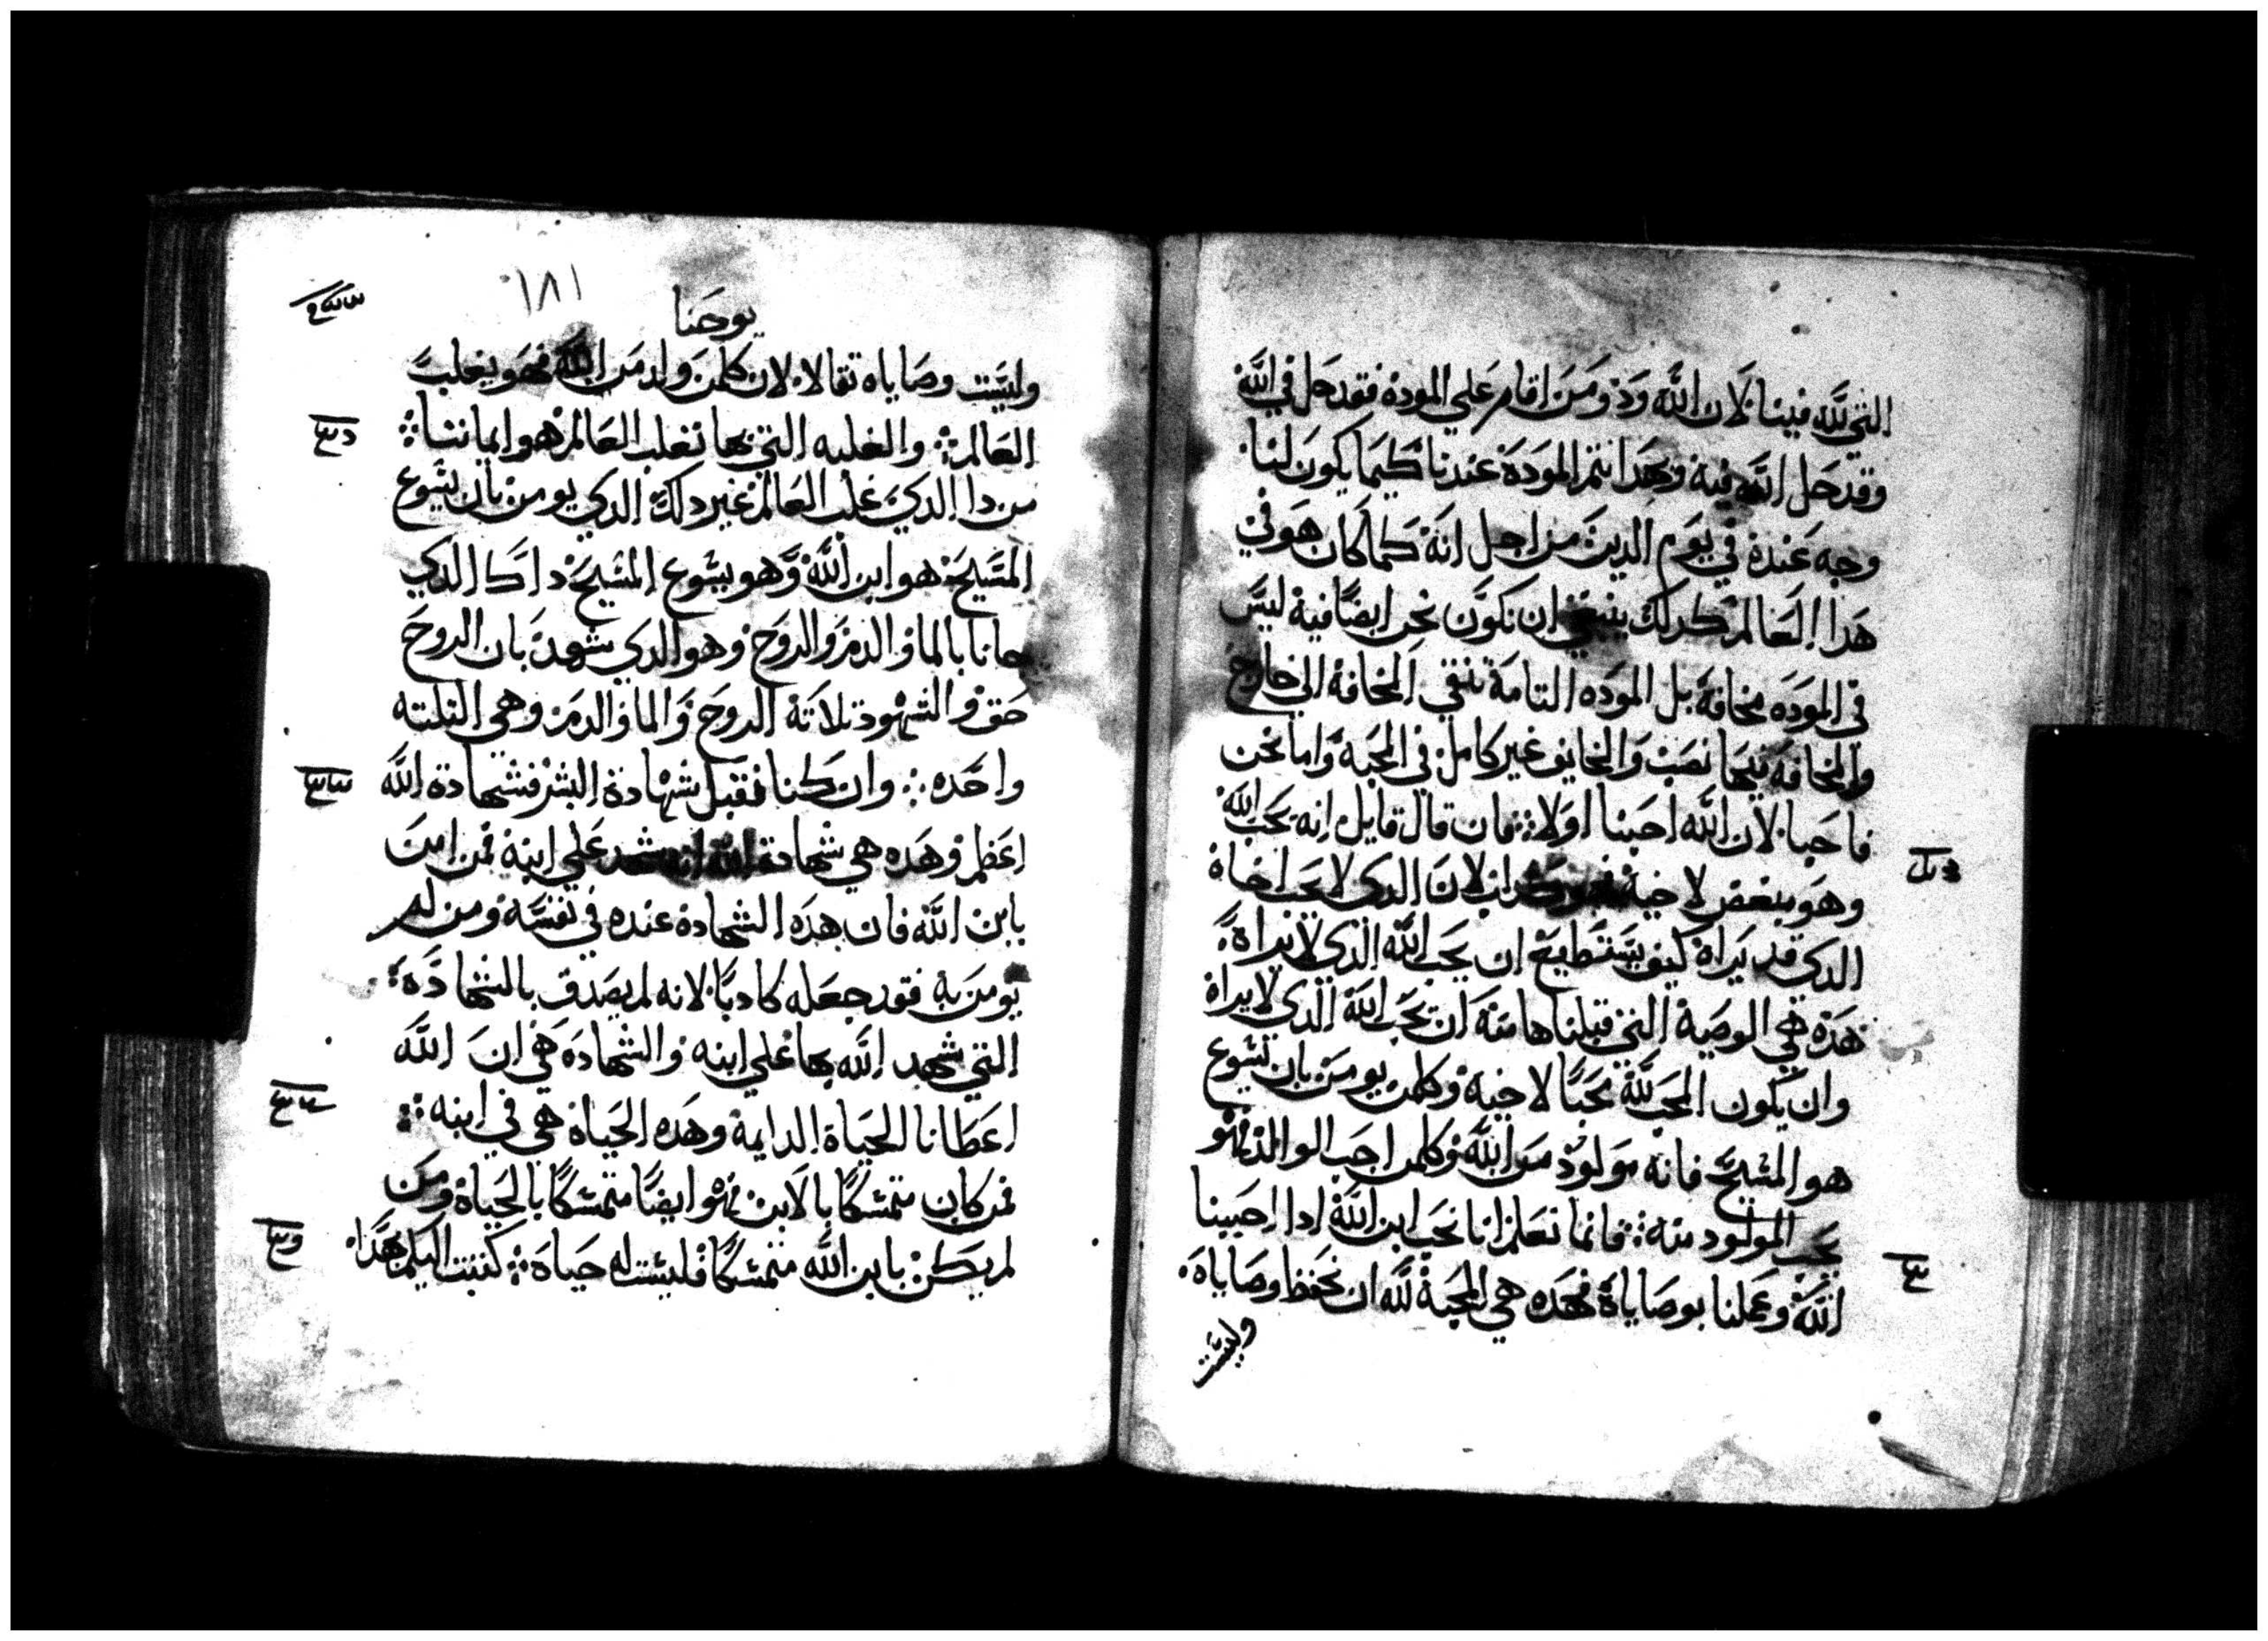 التي لله فينا لان الله ود ومن اقام علي الموده فقد حل في الله
وقد حل الله فيه وبهدا تتم الموده عندنا كيما يكون لنا
وجه عنده في يوم الدين من اجل انه كما كان هو في
هدا العالم كدلك ينبغي ان نكون نحن ايضا فيه ليس
في الموده مخافة بل الموده التامة تنفي المخافة الي خارج
والمخافة فيها نصب والخايف غير كامل في المحبة واما نحن
فاحبنا لان الله احبنا اولا فان قال قايل انه يحب الله
وهو يبغض لاخيه فهو كداب لان الدي لا يحب اخاه
الدي قد يراه كيف يستطيع ان يحب الله الدي لا يراه
هده هي الوصية التي قبلناها منه ان نحب الله الدي لا يراه
وان يكون المحب لله محبا لاخيه وكلمن يومن بان يسوع
هو المسيح فانه مولود من الله وكلمن احب الوالد فهو
يحب المولود منه فانما نعلم انا نحب ابن الله ادا احببنا
الله وعملنا بوصاياه فهده هي المحبة لله ان نحفظ وصاياه
وليست
١٨١
يوحنا
وليست وصاياه ثقالا لان كلمن ولد من الله فهو يغلب
العالم والغلبه التي بها تغلب العالم هو ايماننا
من دا الدي غلب العالم غير دلك الدي يومن بان يسوع
المسيح هو ابن الله وهو يسوع المسيح داك الدي
جانا بالما والدم والروح وهو الدي شهد بان الروح
حق والشهود تلاتة الروح والما والدم وهي التلته
واحده وان كنا نقبل شهادة البشر فشهادة الله
اعظم وهده هي شهادة الله انه شهد علي ابنه فمن امن
بابن الله فان هده الشهادة عنده في نفسه ومن لم
يومن به فقد جعله كادبا لانه لم يصدق بالشهاده
التي شهد الله بها علي ابنه والشهاده هي ان الله
اعطانا الحياة الدايمة وهده الحياة هي في ابنه
فمن كان متمسكا بالابن فهو ايضا متمسكا بالحياة ومن
لم يكن بابن الله متمسكا فليست له حياة كتبت اليكم بهدا